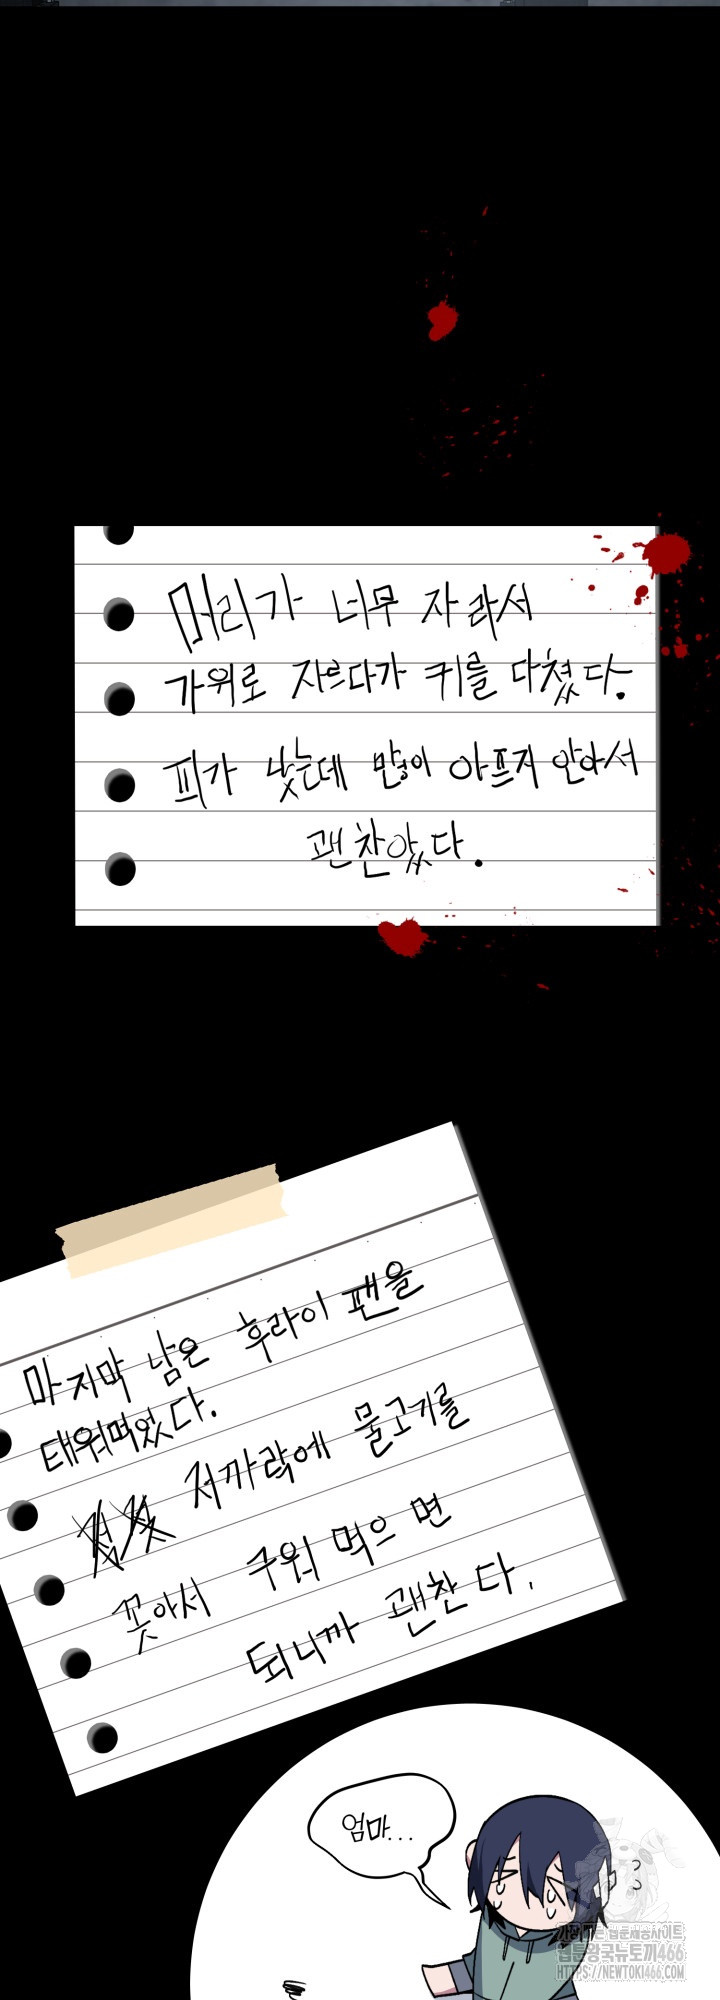 머리가 너무 자라서
가위로 자르다가 귀를 다쳤다.
피가 났는데 많이 아프지 않아서
괜찮았다.
마지막 남은 후라이 팬을
태워먹었다.
저까락에 물고기를
꼿아서 구워 먹으면
되니까 괜찬다.
엄마...
가장빠른 웹툰제공사이트
웹툰왕국뉴토끼466
HTTPS://NEWTOKI466.COM